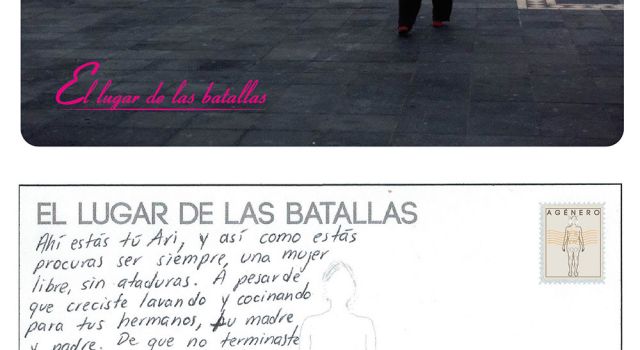 El lugar de las batallas
EL LUGAR DE LAS BATALLAS
AGÉNERO
Ahí estás tú Ari, y así como estás
procuras ser siempre, una mujer
libre, sin ataduras. A pesar de
que creciste lavando y cocinando
para tus hermanos, tu madre
y padre. De que no terminaste